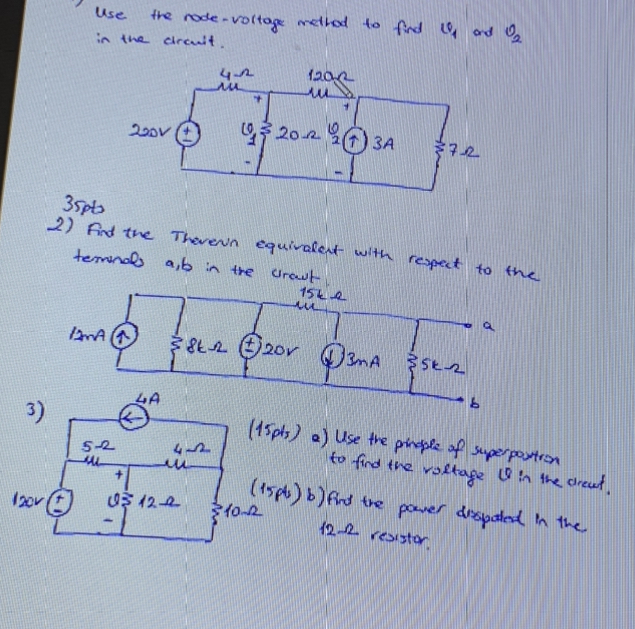 Use the node-voltage method to find v1 and v2
in the circuit.
4Ω 120Ω
220V + - + v1 - 20Ω + v2 - 3A 7Ω
35pts
2) Find the Thevenin equivalent with respect to the
terminals a,b in the circuit
15kΩ
a
12mA 8kΩ + - 20V 3mA 5kΩ
b
3) 4A
(15pts) a) Use the principle of superposition
to find the voltage v in the circuit.
5Ω 4Ω
120V + - + v - 12Ω 10Ω
(15pts) b) Find the power dissipated in the
12Ω resistor.